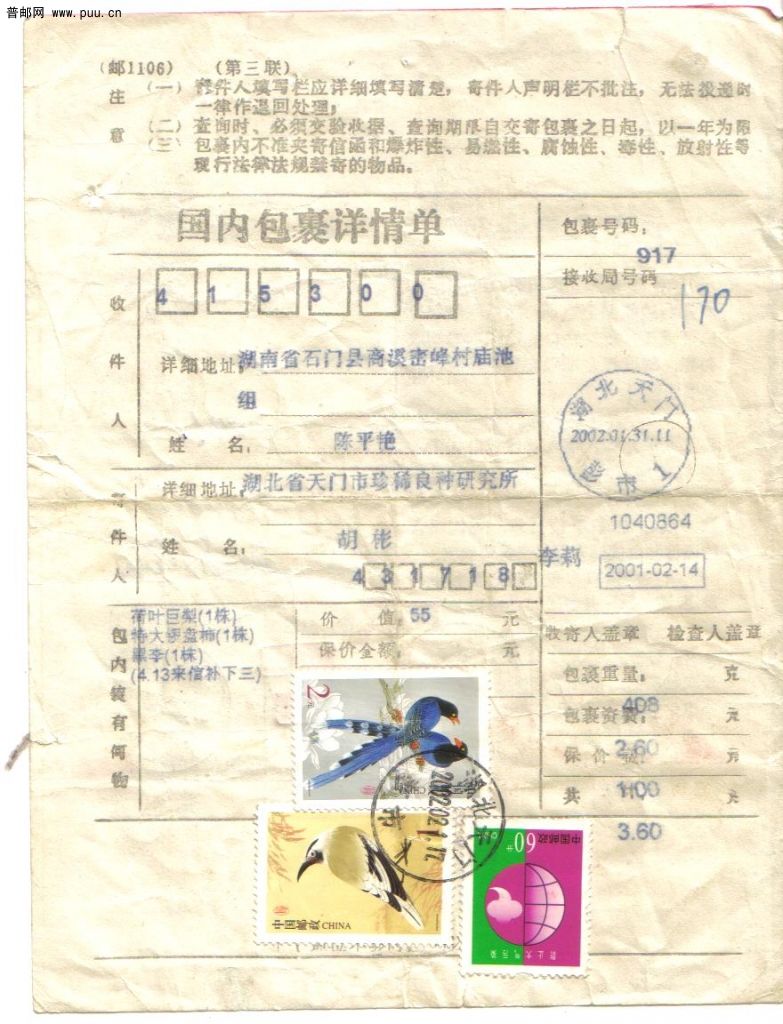 普邮网 www.puu.cn
(邮1106) (第三联)
注意
(一) 寄件人填写栏应详细填写清楚，寄件人声明栏不批注，无法投递时
一律作退回处理；
(二) 查询时、必须交验收据、查询期限自交寄包裹之日起，以一年为限
(三) 包裹内不准夹寄信函和爆炸性、易燃性、腐蚀性、毒性、放射性等
现行法律法规禁寄的物品。
国内包裹详情单
包裹号码：
917
接收局号码
170
收件人
4 1 5 3 0 0
详细地址：湖南省石门县商溪密峰村庙池
组
姓名：陈平艳
湖北天门
2002.01.31.11
市 1
寄件人
详细地址：湖北省天门市珍稀良种研究所
姓名：胡彬
4 3 1 7 1 8
1040864
李莉
2001-02-14
包内装有何物
荷叶巨梨(1株)
特大磨盘柿(1株)
黑李(1株)
(4.13来信补下三)
价值：55 元
保价金额： 元
收寄人盖章 检查人盖章
包裹重量： 克
408
包裹资费： 元
2.60
保价费： 元
1.00
共 元
3.60
2元
中国邮政 CHINA
湖北天门
2002.02.1.17
中国邮政 CHINA
60分
中国邮政
防止大气污染